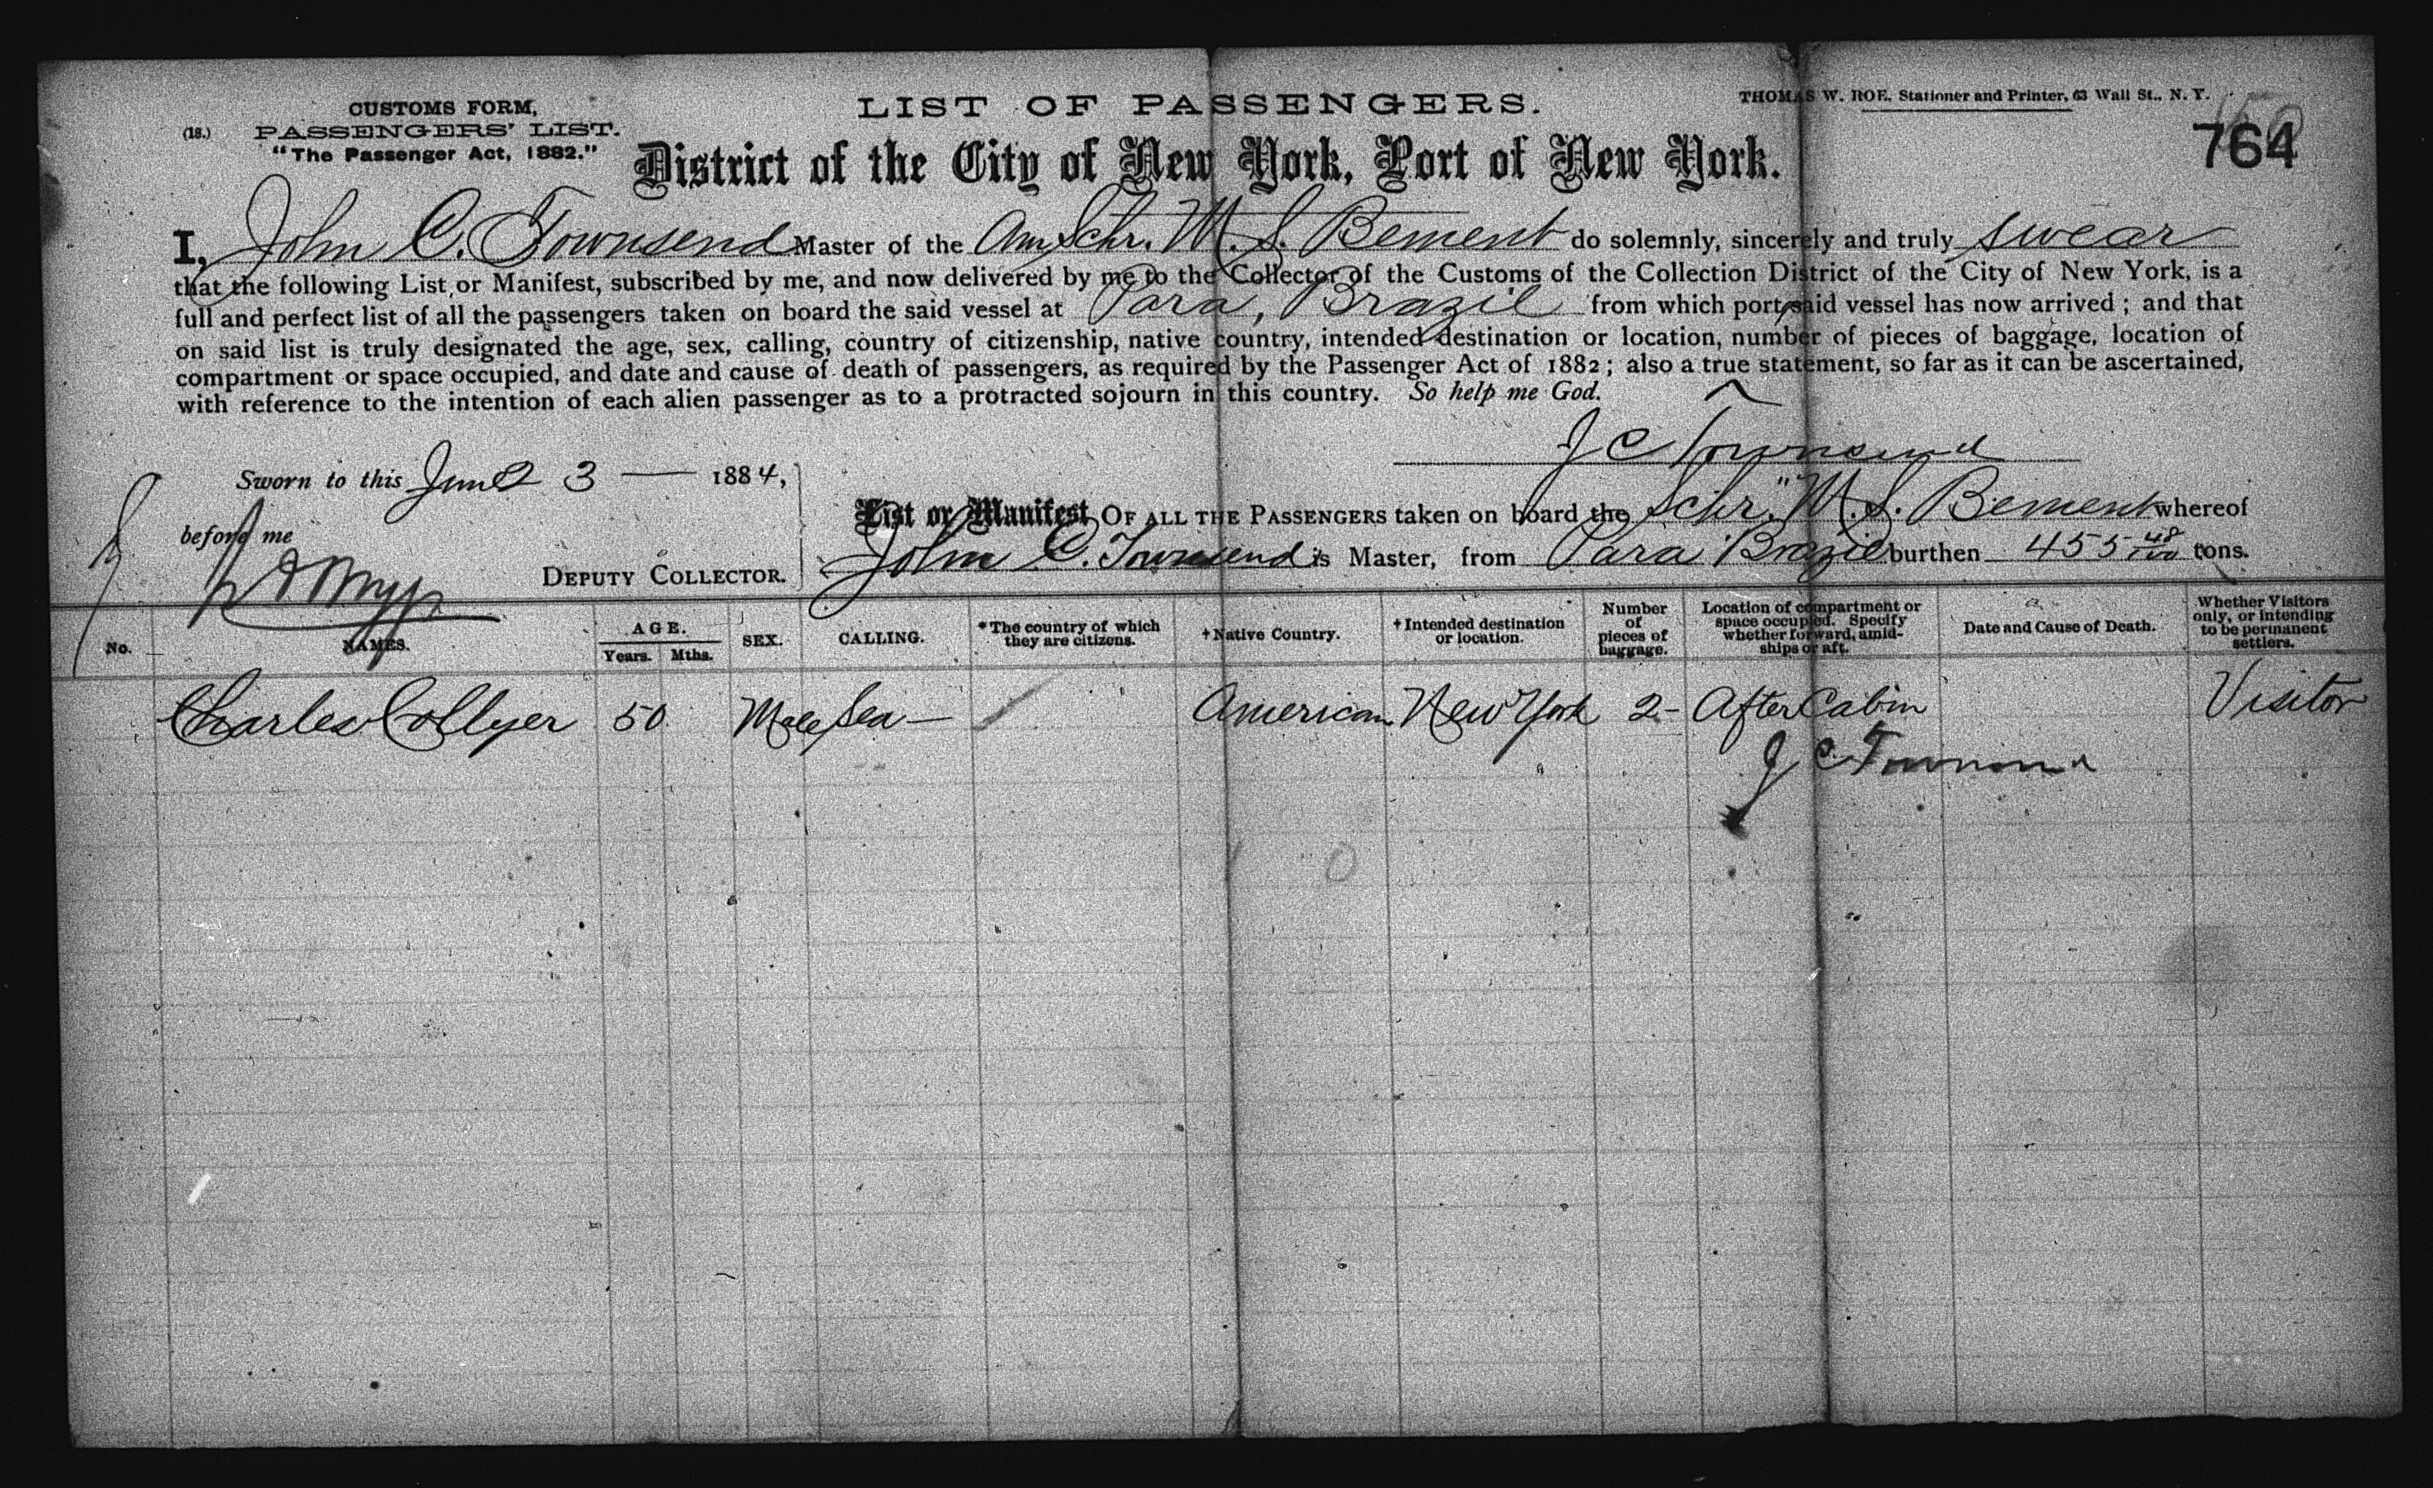 CUSTOMS FORM,
(18.) PASSENGERS' LIST.
"The Passenger Act, 1882."
LIST OF PASSENGERS.
THOMAS W. ROE, Stationer and Printer, 63 Wall St., N. Y.
764
District of the City of New York, Port of New York.
I, John C. Townsend Master of the Am Schr. W. S. Bement do solemnly, sincerely and truly swear
that the following List or Manifest, subscribed by me, and now delivered by me to the Collector of the Customs of the Collection District of the City of New York, is a
full and perfect list of all the passengers taken on board the said vessel at Para, Brazil from which port said vessel has now arrived; and that
on said list is truly designated the age, sex, calling, country of citizenship, native country, intended destination or location, number of pieces of baggage, location of
compartment or space occupied, and date and cause of death of passengers, as required by the Passenger Act of 1882; also a true statement, so far as it can be ascertained,
with reference to the intention of each alien passenger as to a protracted sojourn in this country. So help me God.
J C Townsend
Sworn to this June 3 — 1884,
before me
DEPUTY COLLECTOR.
List or Manifest OF ALL THE PASSENGERS taken on board the Schr. "W. S. Bement whereof
John C. Townsend is Master, from Para Brazil burthen 455 48/100 tons.
No. NAMES. AGE. Years. Mths. SEX. CALLING. *The country of which they are citizens. †Native Country. †Intended destination or location. Number of pieces of baggage. Location of compartment or space occupied. Specify whether forward, amidships or aft. Date and Cause of Death. Whether Visitors only, or intending to be permanent settlers.
Charles Collyer 50 Male Sea — American New York 2- After Cabin Visitor
J C Townsend
0